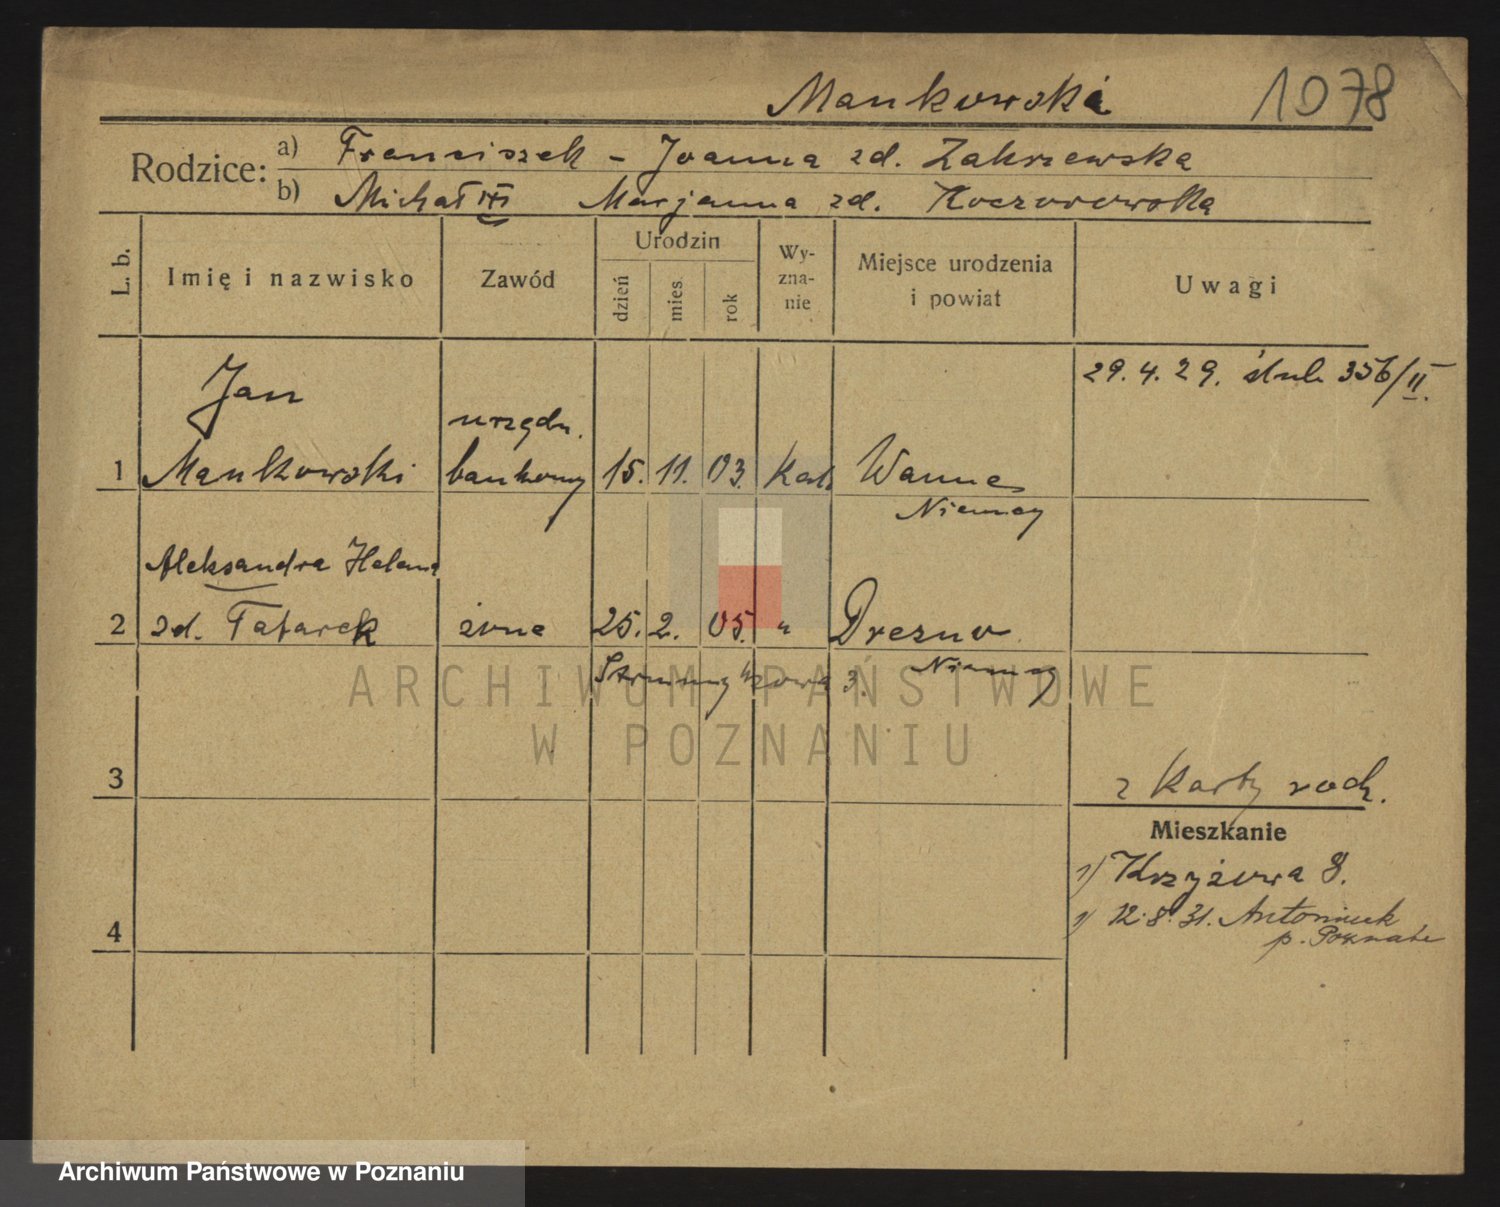 Mankowski
1078
Rodzice: a) Franciszek - Joanna zd. Zakrzewska
b) Michał Marjanna zd. Koczorowska
L. b. Imię i nazwisko Zawód Urodzin Wy-zna-nie Miejsce urodzenia i powiat Uwagi
dzień mies. rok
29.4.29. ślub 356/II.
Jan urzędn.
1 Mankowski bankowy 15. 11. 03. Kat. Wanne
Niemcy
Aleksandra Helena
2 zd. Tatarek żona 25. 2. 05. " Drezno
Niemcy
3.
3
z Karty rodz.
Mieszkanie
1) Krzyżowa 8.
4
12.8.31. Antoninek
p. Poznań
ARCHIWUM PAŃSTWOWE
W POZNANIU
Archiwum Państwowe w Poznaniu